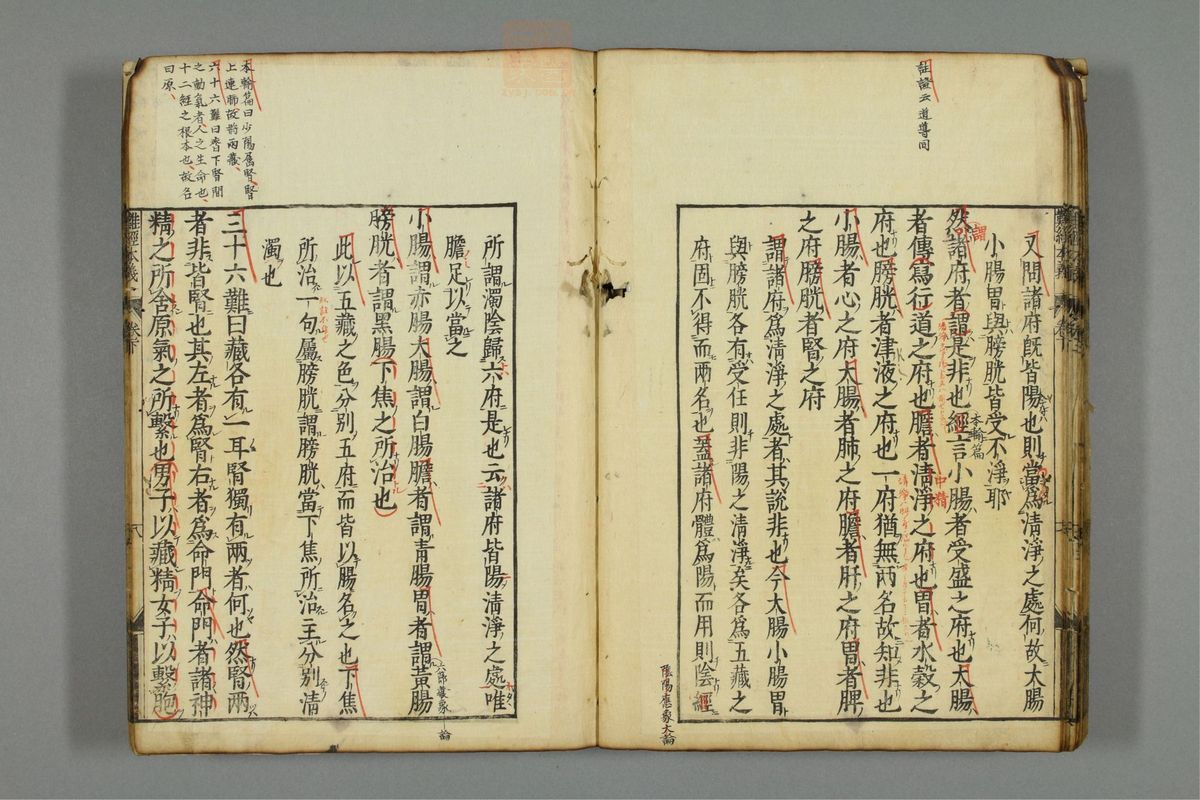 註證云道導同
又問諸府既皆陽也則當爲清淨之處何故大腸
小腸胃與膀胱皆受不淨耶
然諸府者謂是非也經言小腸者受盛之府也大腸
謂
本輸篇
者傳寫行道之府也膽者清淨之府也胃者水穀之
中精
府也膀胱者津液之府也一府猶無兩名故知非也
小腸者心之府大腸者肺之府膽者肝之府胃者脾
之府膀胱者腎之府
謂諸府爲清淨之處者其說非也今大腸小腸胃
與膀胱各有受任則非陽之清淨矣各爲五藏之
府固不得而兩名也蓋諸府體爲陽而用則陰經
陰陽應象大論
所謂濁陰歸六府是也云諸府皆陽清淨之處唯
膽足以當之
六節藏象論
小腸謂赤腸大腸謂白腸膽者謂青腸胃者謂黃腸
膀胱者謂黑腸下焦之所治也
此以五藏之色分別五府而皆以腸名之也下焦
所治一句屬膀胱謂膀胱當下焦所治主分別清
濁也
本輸篇曰少陽屬腎腎
上連肺故將兩藏
六十六難曰臍下腎間
之動氣者人之生命也
十二經之根本也故名
曰原
三十六難曰藏各有一耳腎獨有兩者何也然腎兩
者非皆腎也其左者爲腎右者爲命門命門者諸神
精之所舍原氣之所繫也男子以藏精女子以繫胞
難經本義 卷下 八